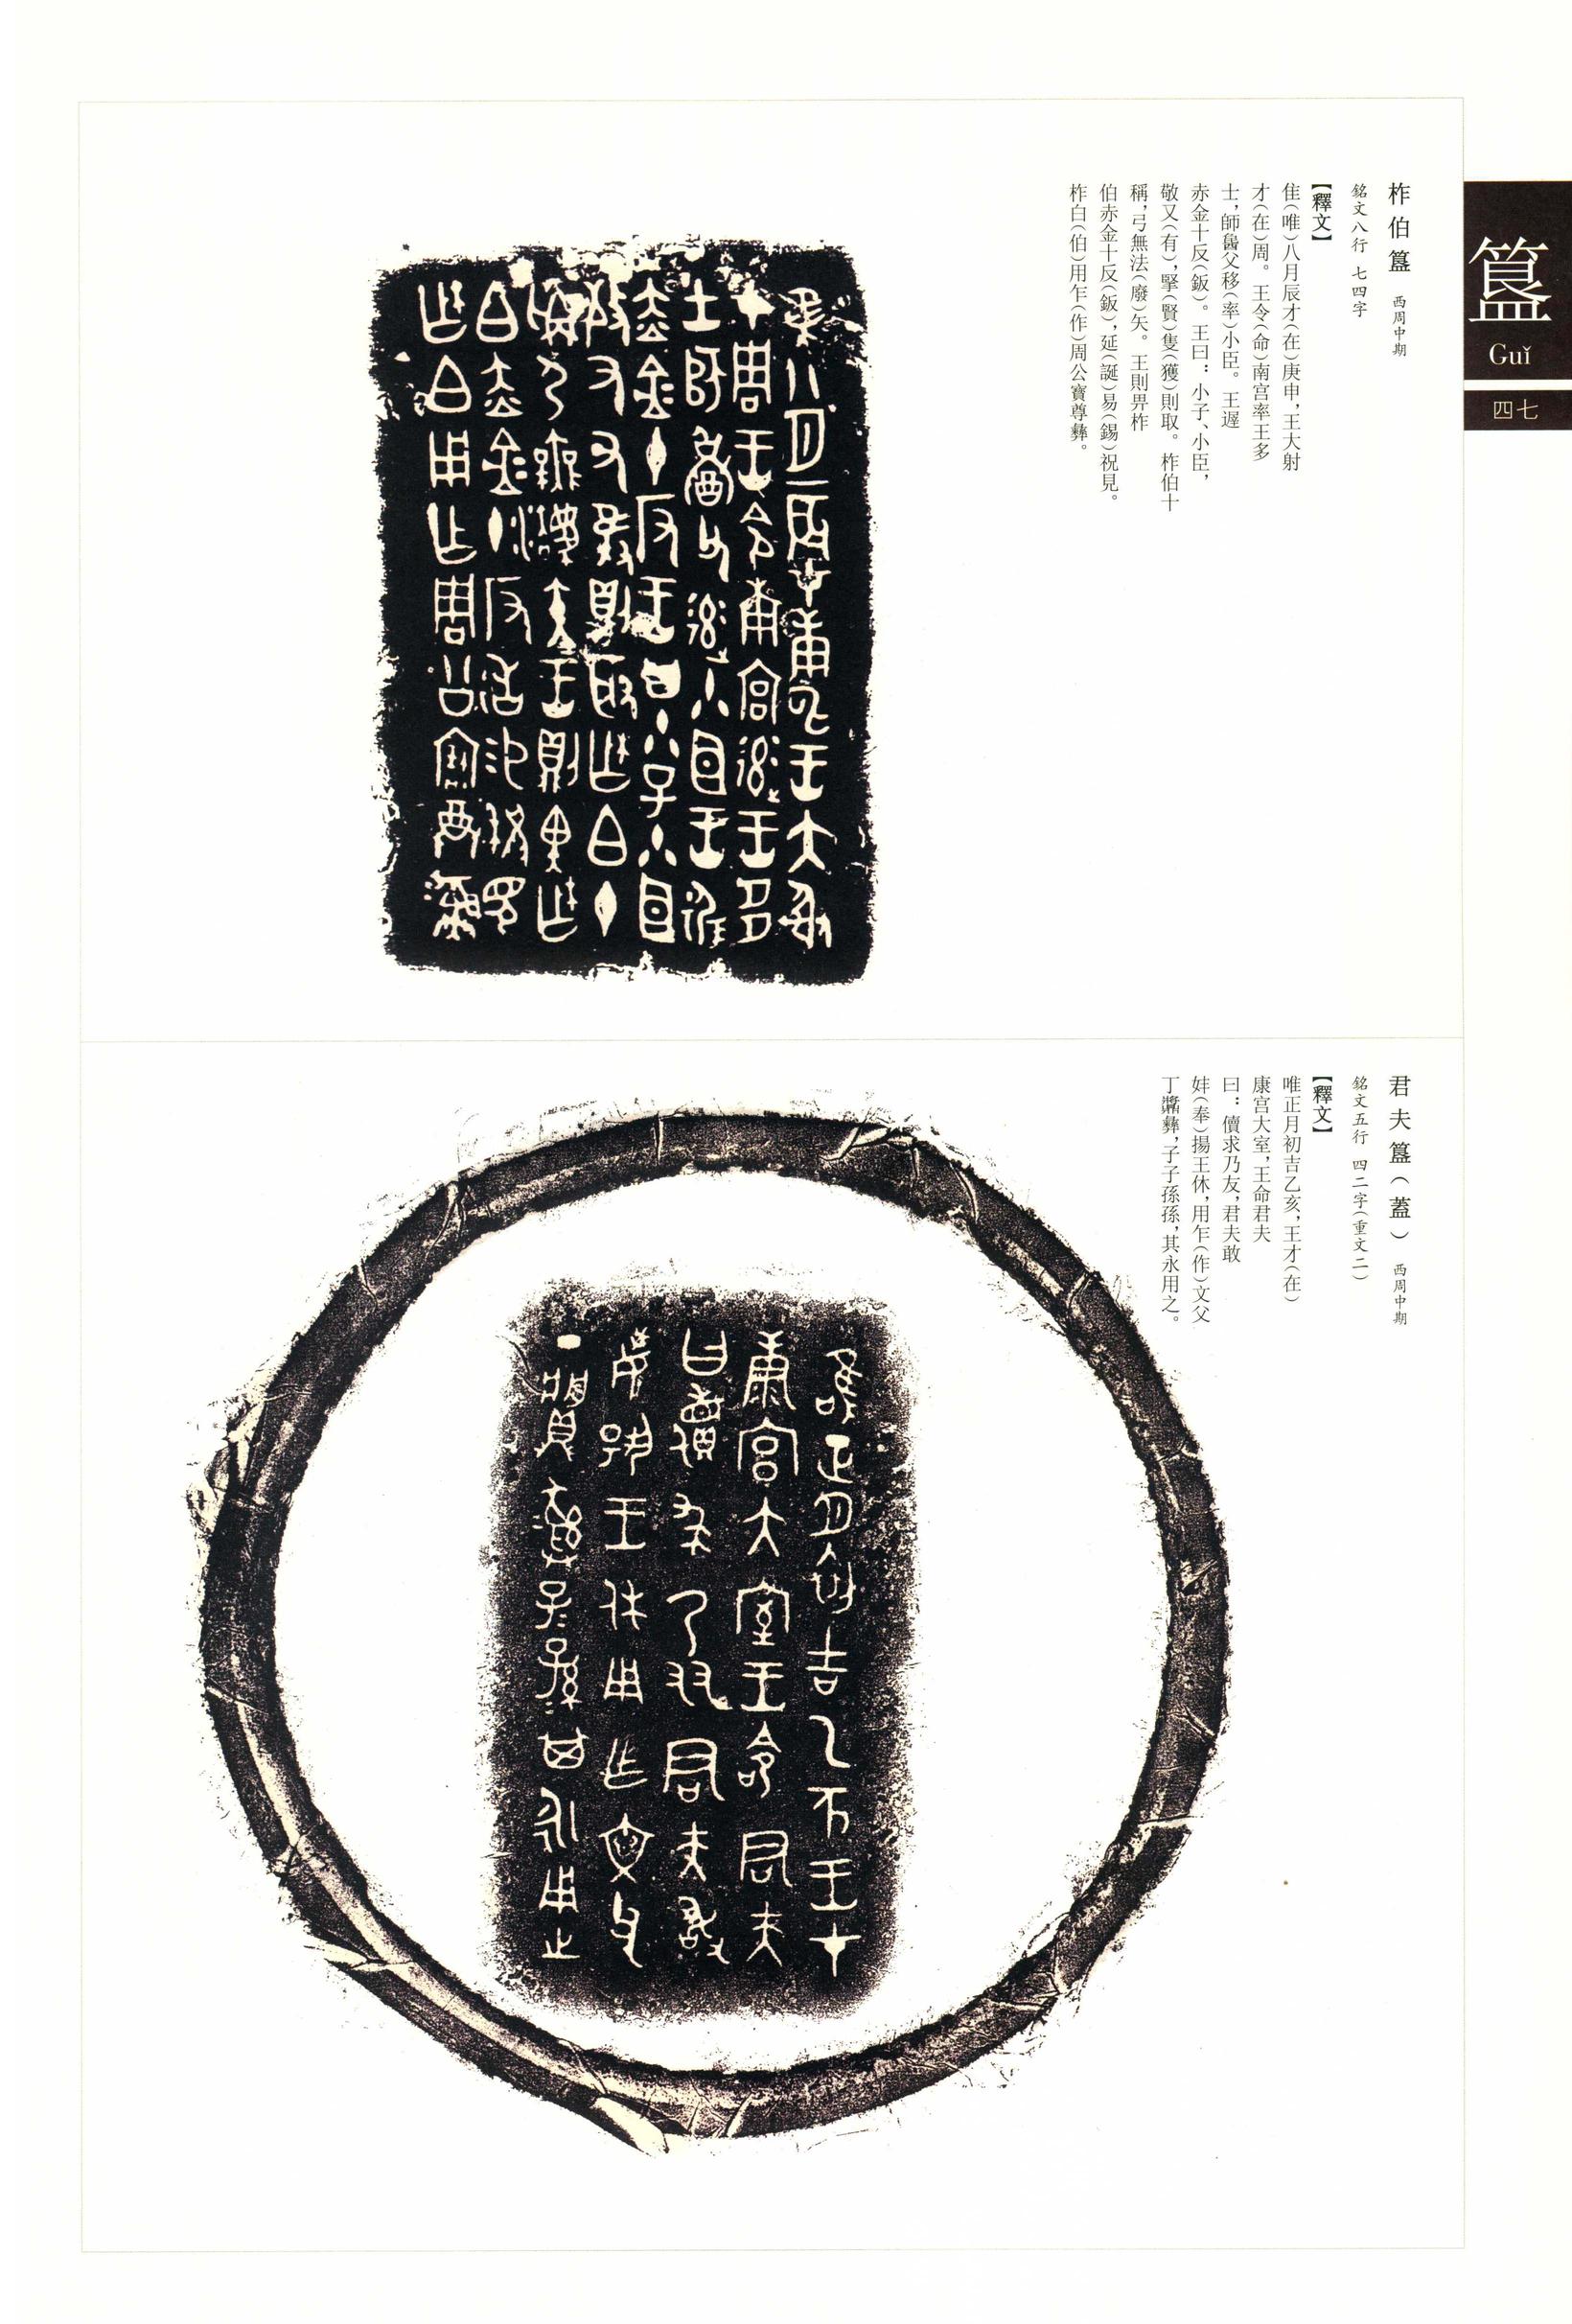 簋
Guǐ
四七
柞伯簋 西周中期
銘文八行 七四字
【釋文】
隹（唯）八月辰才（在）庚申，王大射
才（在）周。王令（命）南宫率王多
士，師𩛥父移（率）小臣。王遲
赤金十反（鈑）。王曰：小子、小臣，
敬又（有），掔（賢）隻（獲）則取。柞伯十
稱，弓無法（廢）矢。王則畀柞
伯赤金十反（鈑），延（誕）易（錫）祝見。
柞白（伯）用乍（作）周公寶尊彝。
君夫簋（蓋） 西周中期
銘文五行 四二字（重文二）
【釋文】
唯正月初吉乙亥，王才（在）
康宫大室，王命君夫
曰：價求乃友，君夫敢
妦（奉）揚王休，用乍（作）文父
丁䵼彝，子子孫孫，其永用之。